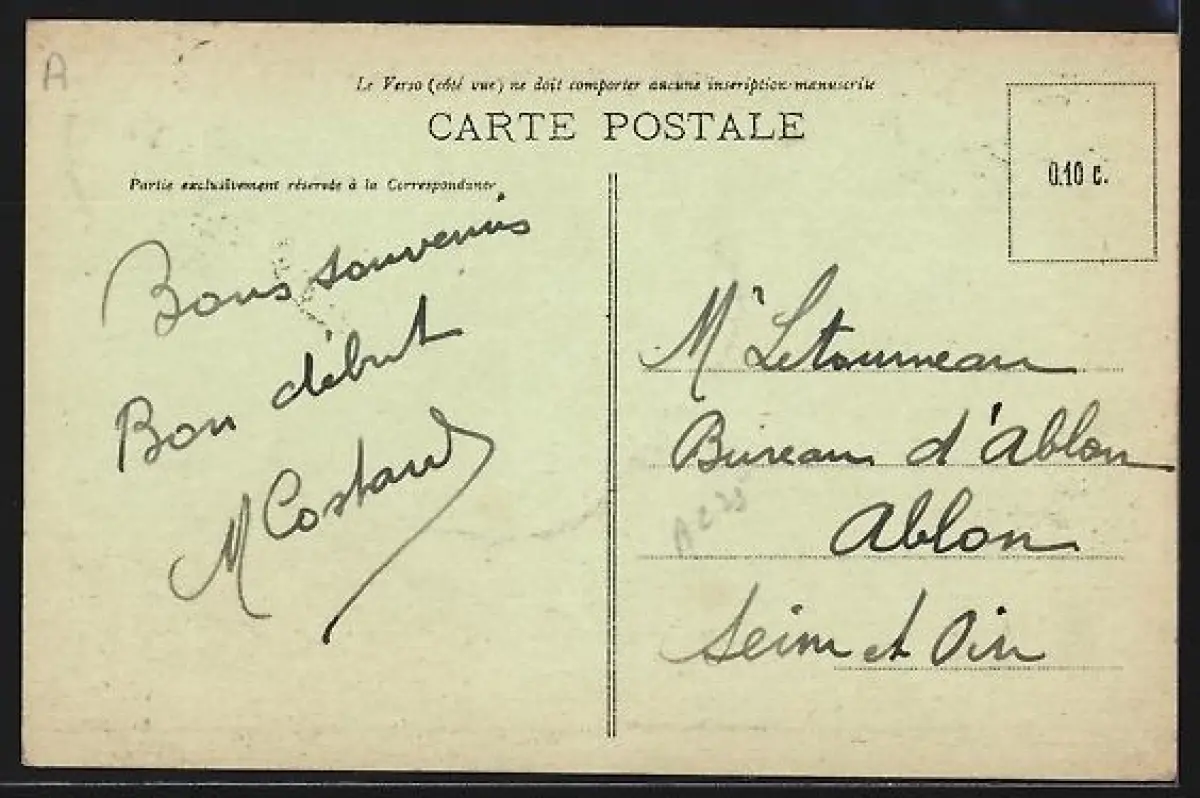 A
Le Verso (côté vue) ne doit comporter aucune inscription manuscrite
CARTE POSTALE
Partie exclusivement réservée à la Correspondance
0.10 c.
Bons souvenirs
Bon début
M Costard
Mr Letourneau
Bureau d'Ablon
Ablon
Seine et Oise